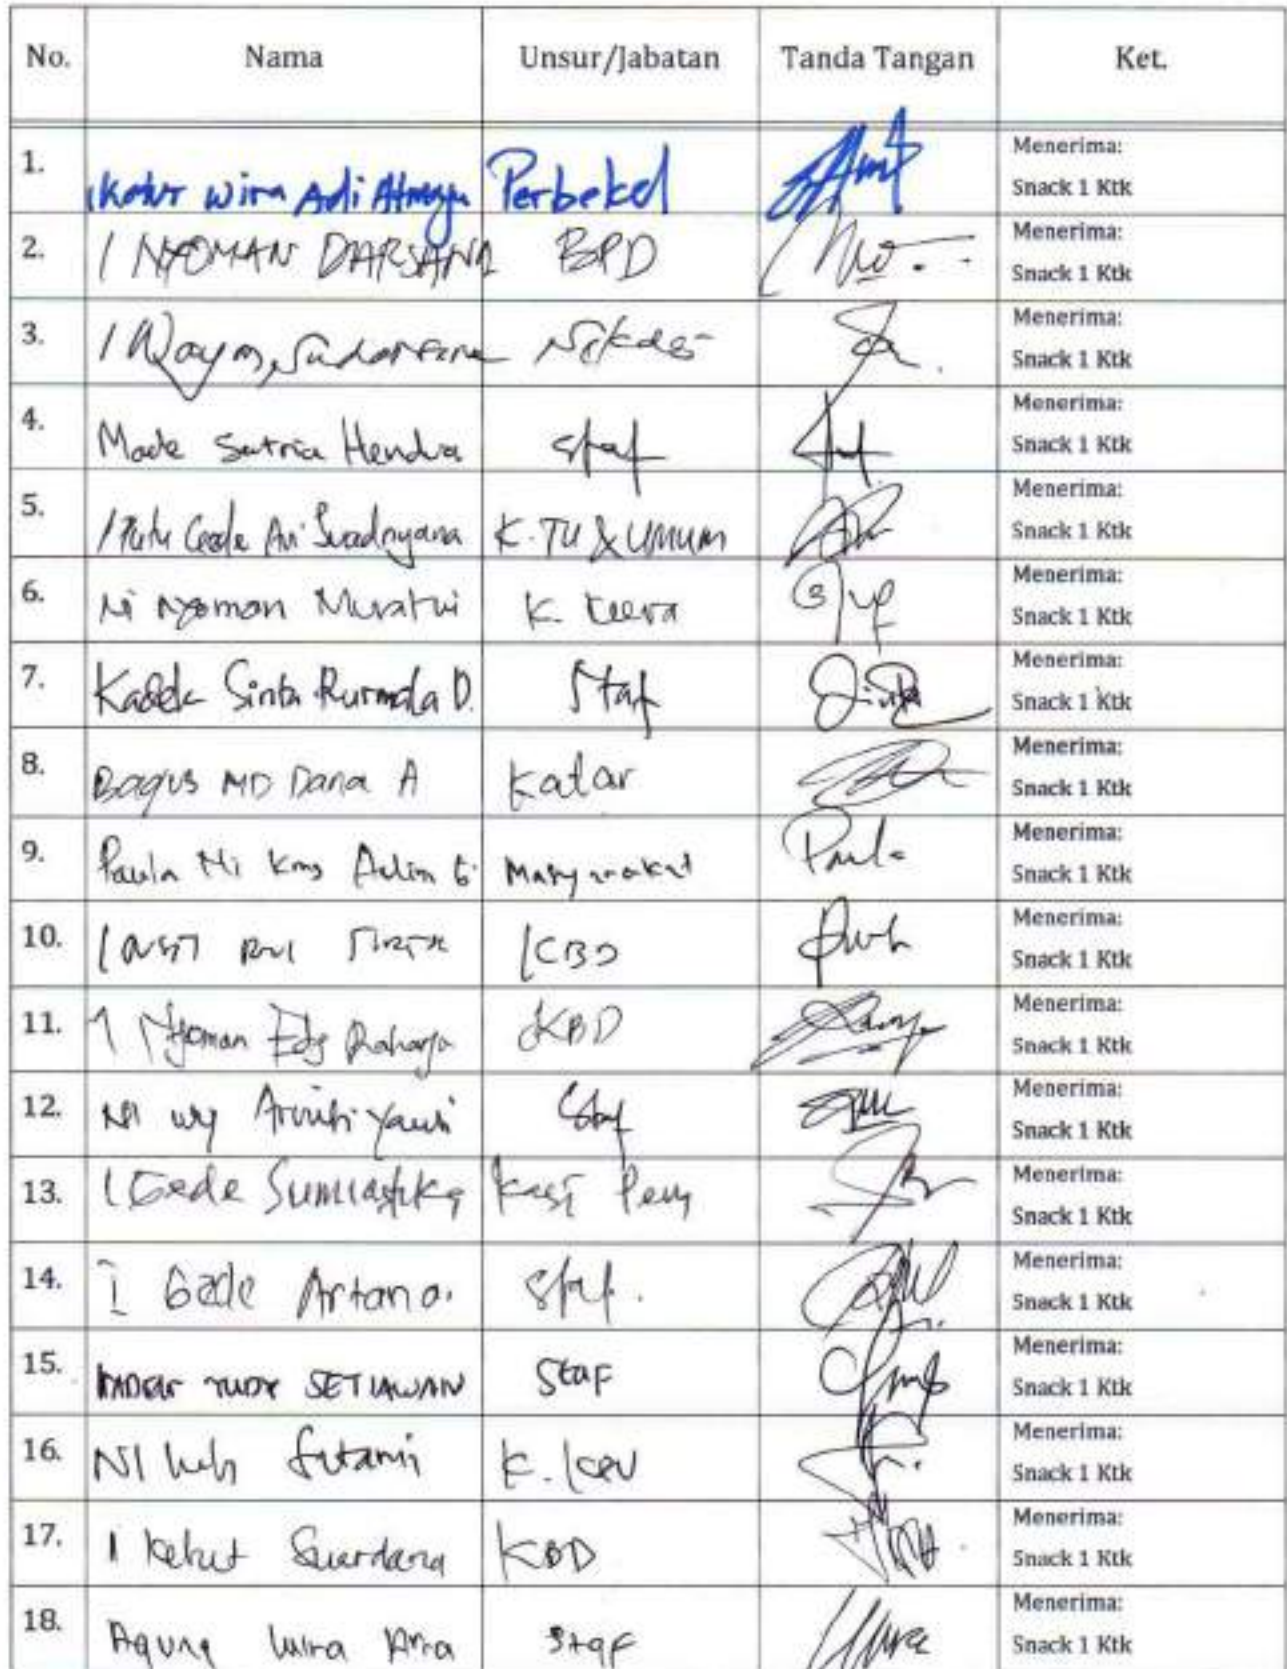 No. Nama Unsur/Jabatan Tanda Tangan Ket.
1. I Ketut Wira Adi Atmaja Perbekel Menerima:
Snack 1 Ktk
2. I NYOMAN DARSANA BPD Menerima:
Snack 1 Ktk
3. I Wayan Menerima:
Snack 1 Ktk
4. Made Satria Hendra Staf Menerima:
Snack 1 Ktk
5. I Putu Gede Ari Suadnyana K. TU & UMUM Menerima:
Snack 1 Ktk
6. Ni Nyoman Muratni K. Menerima:
Snack 1 Ktk
7. Kadek Sinta Purmala D. Staf Menerima:
Snack 1 Ktk
8. Bagus MD Dana A Katar Menerima:
Snack 1 Ktk
9. Paula Ni Kmg Masyarakat Paula Menerima:
Snack 1 Ktk
10. KBD Menerima:
Snack 1 Ktk
11. I Nyoman Edy Raharja KBD Menerima:
Snack 1 Ktk
12. Ni Wy Staf Menerima:
Snack 1 Ktk
13. I Gede Sumiastika Kasi Menerima:
Snack 1 Ktk
14. I Gede Artana. Staf. Menerima:
Snack 1 Ktk
15. SETIAWAN Staf Menerima:
Snack 1 Ktk
16. NI Luh Sutami K. Menerima:
Snack 1 Ktk
17. I Ketut Suardana KBD Menerima:
Snack 1 Ktk
18. Agung Wira Staf Menerima:
Snack 1 Ktk